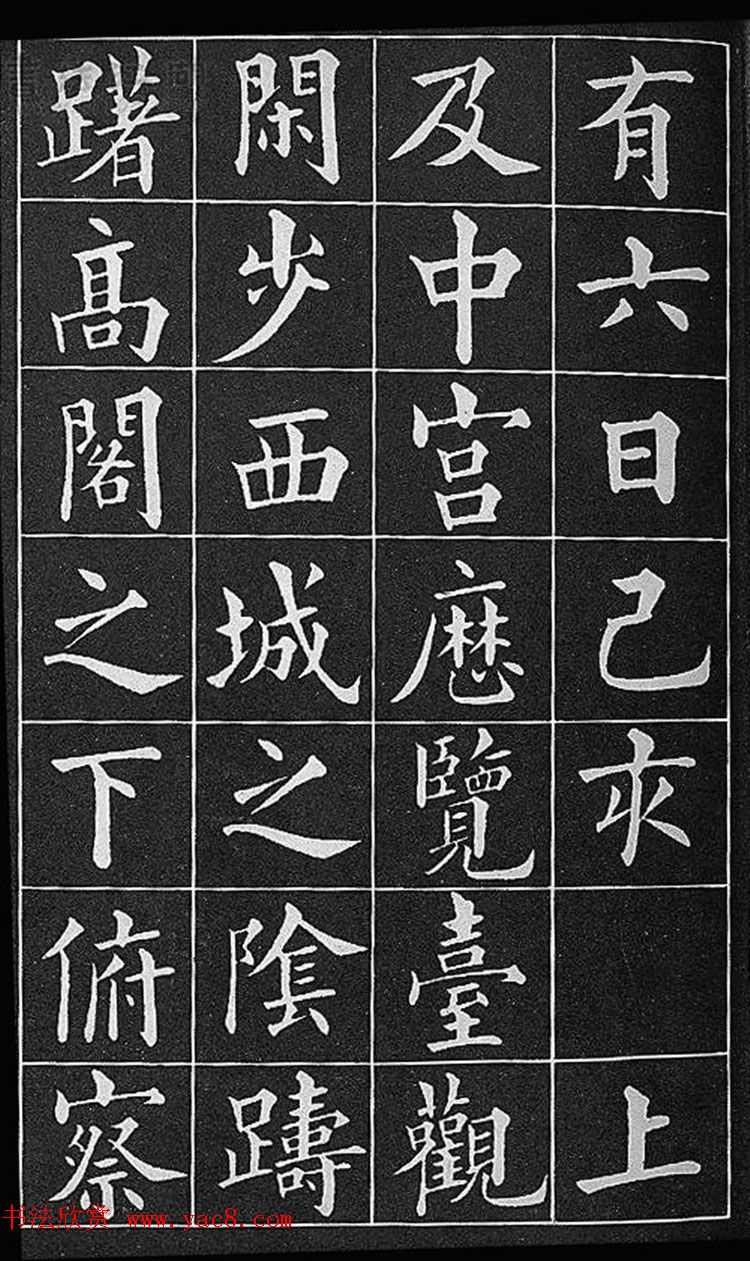 有六日己亥 上
及中宮歷覽臺觀
閑步西城之陰躊
躇高閣之下俯察
书法欣赏 www.yac8.com